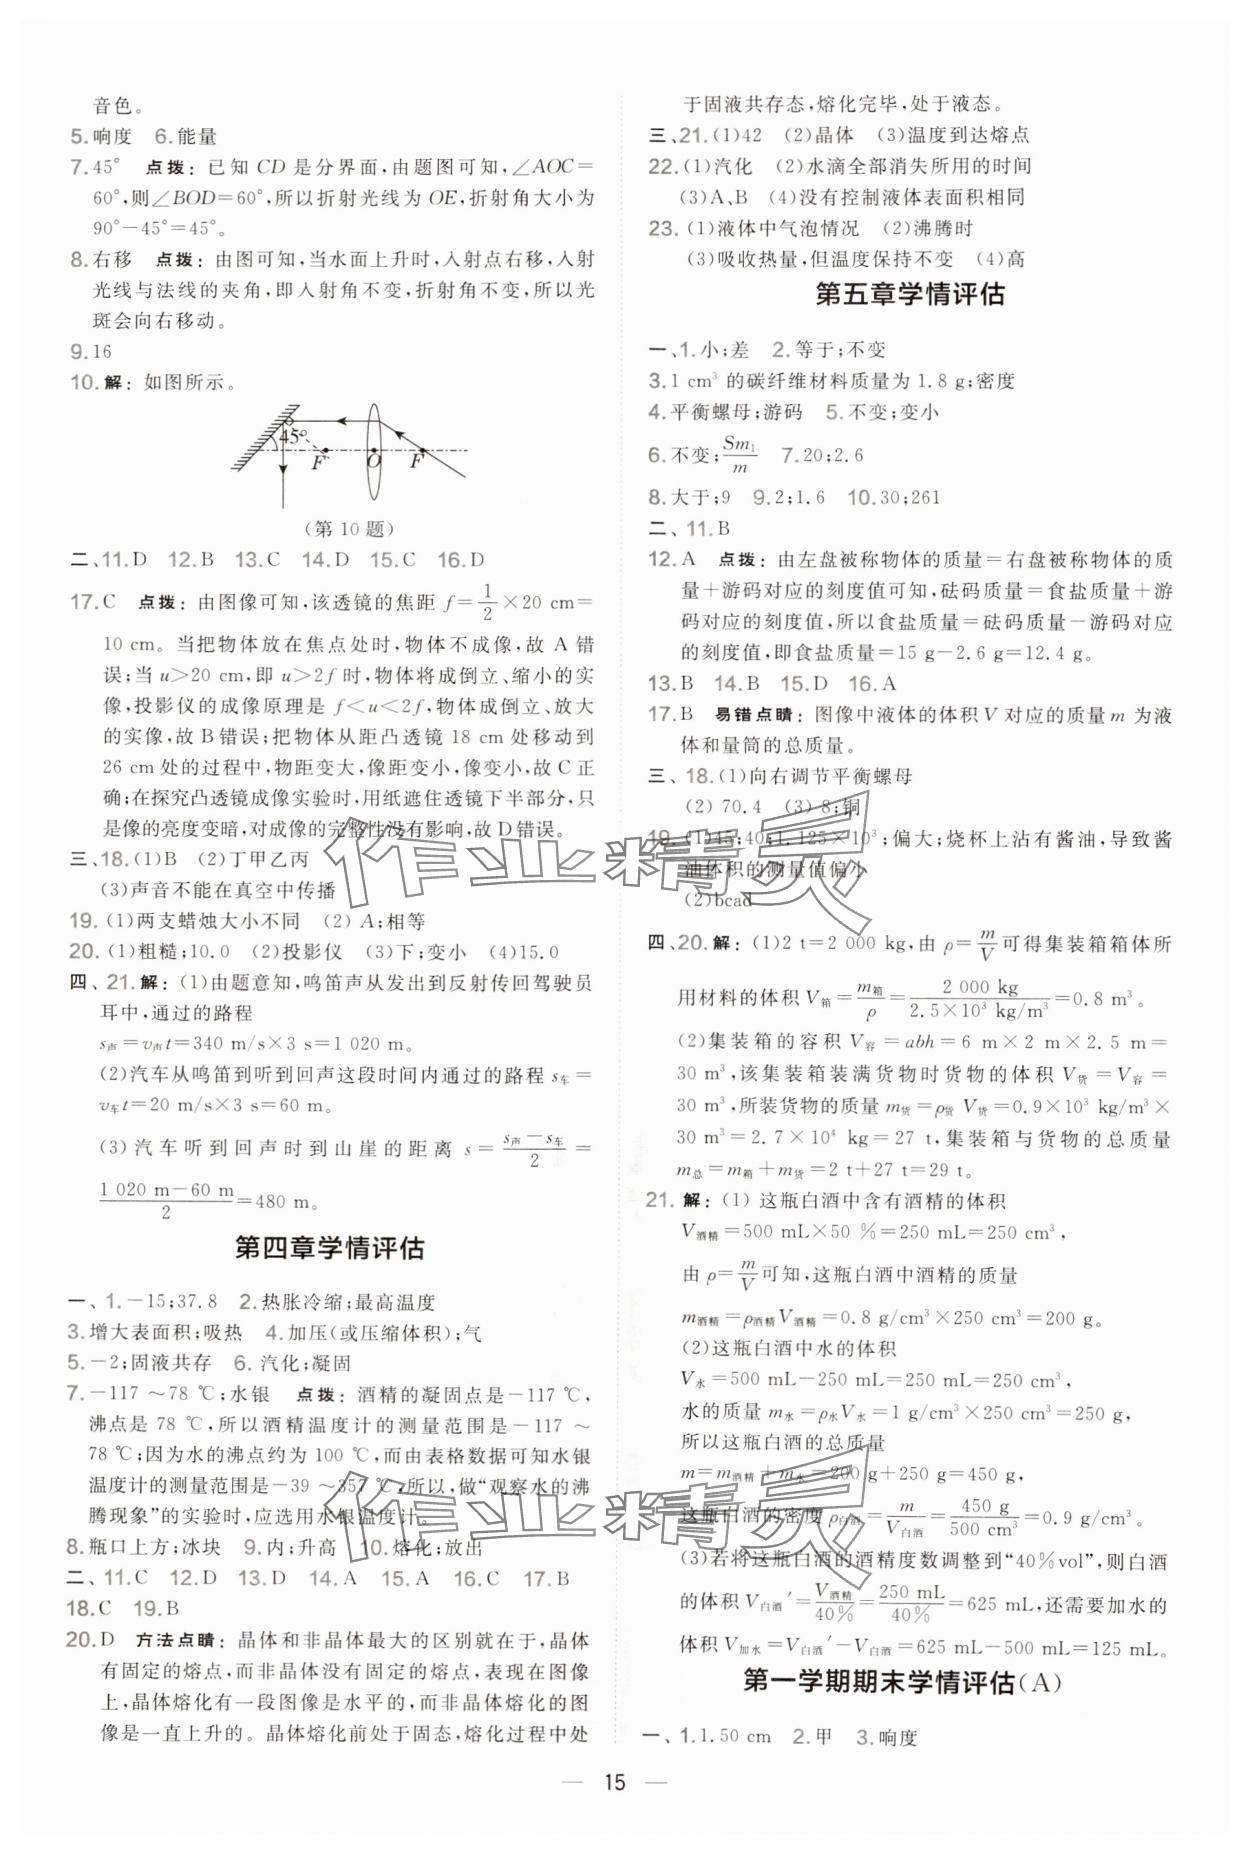 音色。
5.响度　6.能量
7.45°　点拨：已知 CD 是分界面,由题图可知,∠AOC=
60°,则∠BOD=60°,所以折射光线为 OE,折射角大小为
90°-45°=45°。
8.右移　点拨：由图可知,当水面上升时,入射点右移,入射
光线与法线的夹角,即入射角不变,折射角不变,所以光
斑会向右移动。
9.16
10.解：如图所示。
45°
F　O　F
(第 10 题)
二、11.D　12.B　13.C　14.D　15.C　16.D
17.C　点拨：由图像可知,该透镜的焦距 f=1/2×20 cm=
10 cm。当把物体放在焦点处时,物体不成像,故 A 错
误;当 u>20 cm,即 u>2f 时,物体将成倒立、缩小的实
像,投影仪的成像原理是 f<u<2f,物体成倒立、放大
的实像,故 B 错误;把物体从距凸透镜 18 cm 处移动到
26 cm 处的过程中,物距变大,像距变小,像变小,故 C 正
确;在探究凸透镜成像实验时,用纸遮住透镜下半部分,只
是像的亮度变暗,对成像的完整性没有影响,故 D 错误。
三、18.(1)B　(2)丁甲乙丙
(3)声音不能在真空中传播
19.(1)两支蜡烛大小不同　(2) A;相等
20.(1)粗糙;10.0　(2)投影仪　(3)下;变小　(4)15.0
四、21.解：(1)由题意知,鸣笛声从发出到反射传回驾驶员
耳中,通过的路程
s声=v声t=340 m/s×3 s=1 020 m。
(2)汽车从鸣笛到听到回声这段时间内通过的路程 s车=
v车t=20 m/s×3 s=60 m。
(3)汽车听到回声时到山崖的距离 s=(s声-s车)/2=
(1 020 m-60 m)/2=480 m。
第四章学情评估
一、1.-15;37.8　2.热胀冷缩;最高温度
3.增大表面积;吸热　4.加压(或压缩体积);气
5.-2;固液共存　6.汽化;凝固
7.-117 ~78 ℃;水银　点拨：酒精的凝固点是-117 ℃,
沸点是 78 ℃,所以酒精温度计的测量范围是-117 ~
78 ℃;因为水的沸点约为 100 ℃,而由表格数据可知水银
温度计的测量范围是-39 ~357 ℃,所以,做“观察水的沸
腾现象”的实验时,应选用水银温度计。
8.瓶口上方;冰块　9.内;升高　10.熔化;放出
二、11.C　12.D　13.D　14.A　15.A　16.C　17.B
18.C　19.B
20.D　方法点睛：晶体和非晶体最大的区别就在于,晶体
有固定的熔点,而非晶体没有固定的熔点,表现在图像
上,晶体熔化有一段图像是水平的,而非晶体熔化的图
像是一直上升的。晶体熔化前处于固态,熔化过程中处
于固液共存态,熔化完毕,处于液态。
三、21.(1)42　(2)晶体　(3)温度到达熔点
22.(1)汽化　(2)水滴全部消失所用的时间
(3)A、B　(4)没有控制液体表面积相同
23.(1)液体中气泡情况　(2)沸腾时
(3)吸收热量,但温度保持不变　(4)高
第五章学情评估
一、1.小;差　2.等于;不变
3.1 cm³ 的碳纤维材料质量为 1.8 g;密度
4.平衡螺母;游码　5.不变;变小
6.不变;Sm₁/m　7.20;2.6
8.大于;9　9.2;1.6　10.30;261
二、11.B
12.A　点拨：由左盘被称物体的质量=右盘被称物体的质
量+游码对应的刻度值可知,砝码质量=食盐质量+游
码对应的刻度值,所以食盐质量=砝码质量-游码对应
的刻度值,即食盐质量=15 g-2.6 g=12.4 g。
13.B　14.B　15.D　16.A
17.B　易错点睛：图像中液体的体积 V 对应的质量 m 为液
体和量筒的总质量。
三、18.(1)向右调节平衡螺母
(2)70.4　(3)8;铜
19.(1)45;40;1.125×10³;偏大;烧杯上沾有酱油,导致酱
油体积的测量值偏小
(2)bcad
四、20.解：(1)2 t=2 000 kg,由 ρ=m/V可得集装箱箱体所
用材料的体积 V箱=m箱/ρ=2 000 kg/(2.5×10³ kg/m³)=0.8 m³。
(2)集装箱的容积 V容=abh=6 m×2 m×2.5 m=
30 m³,该集装箱装满货物时货物的体积 V货=V容=
30 m³,所装货物的质量 m货=ρ货 V货=0.9×10³ kg/m³×
30 m³=2.7×10⁴ kg=27 t,集装箱与货物的总质量
m总=m箱+m货=2 t+27 t=29 t。
21.解：(1)这瓶白酒中含有酒精的体积
V酒精=500 mL×50 %=250 mL=250 cm³,
由 ρ=m/V可知,这瓶白酒中酒精的质量
m酒精=ρ酒精V酒精=0.8 g/cm³×250 cm³=200 g。
(2)这瓶白酒中水的体积
V水=500 mL-250 mL=250 mL=250 cm³,
水的质量 m水=ρ水V水=1 g/cm³×250 cm³=250 g,
所以这瓶白酒的总质量
m=m酒精+m水=200 g+250 g=450 g,
这瓶白酒的密度 ρ白酒=m/V白酒=450 g/500 cm³=0.9 g/cm³。
(3)若将这瓶白酒的酒精度数调整到“40%vol”,则白酒
的体积 V白酒′=V酒精/40%=250 mL/40%=625 mL,还需要加水的
体积 V加水=V白酒′-V白酒=625 mL-500 mL=125 mL。
第一学期期末学情评估(A)
一、1.1.50 cm　2.甲　3.响度
— 15 —
作业精灵
作业精灵